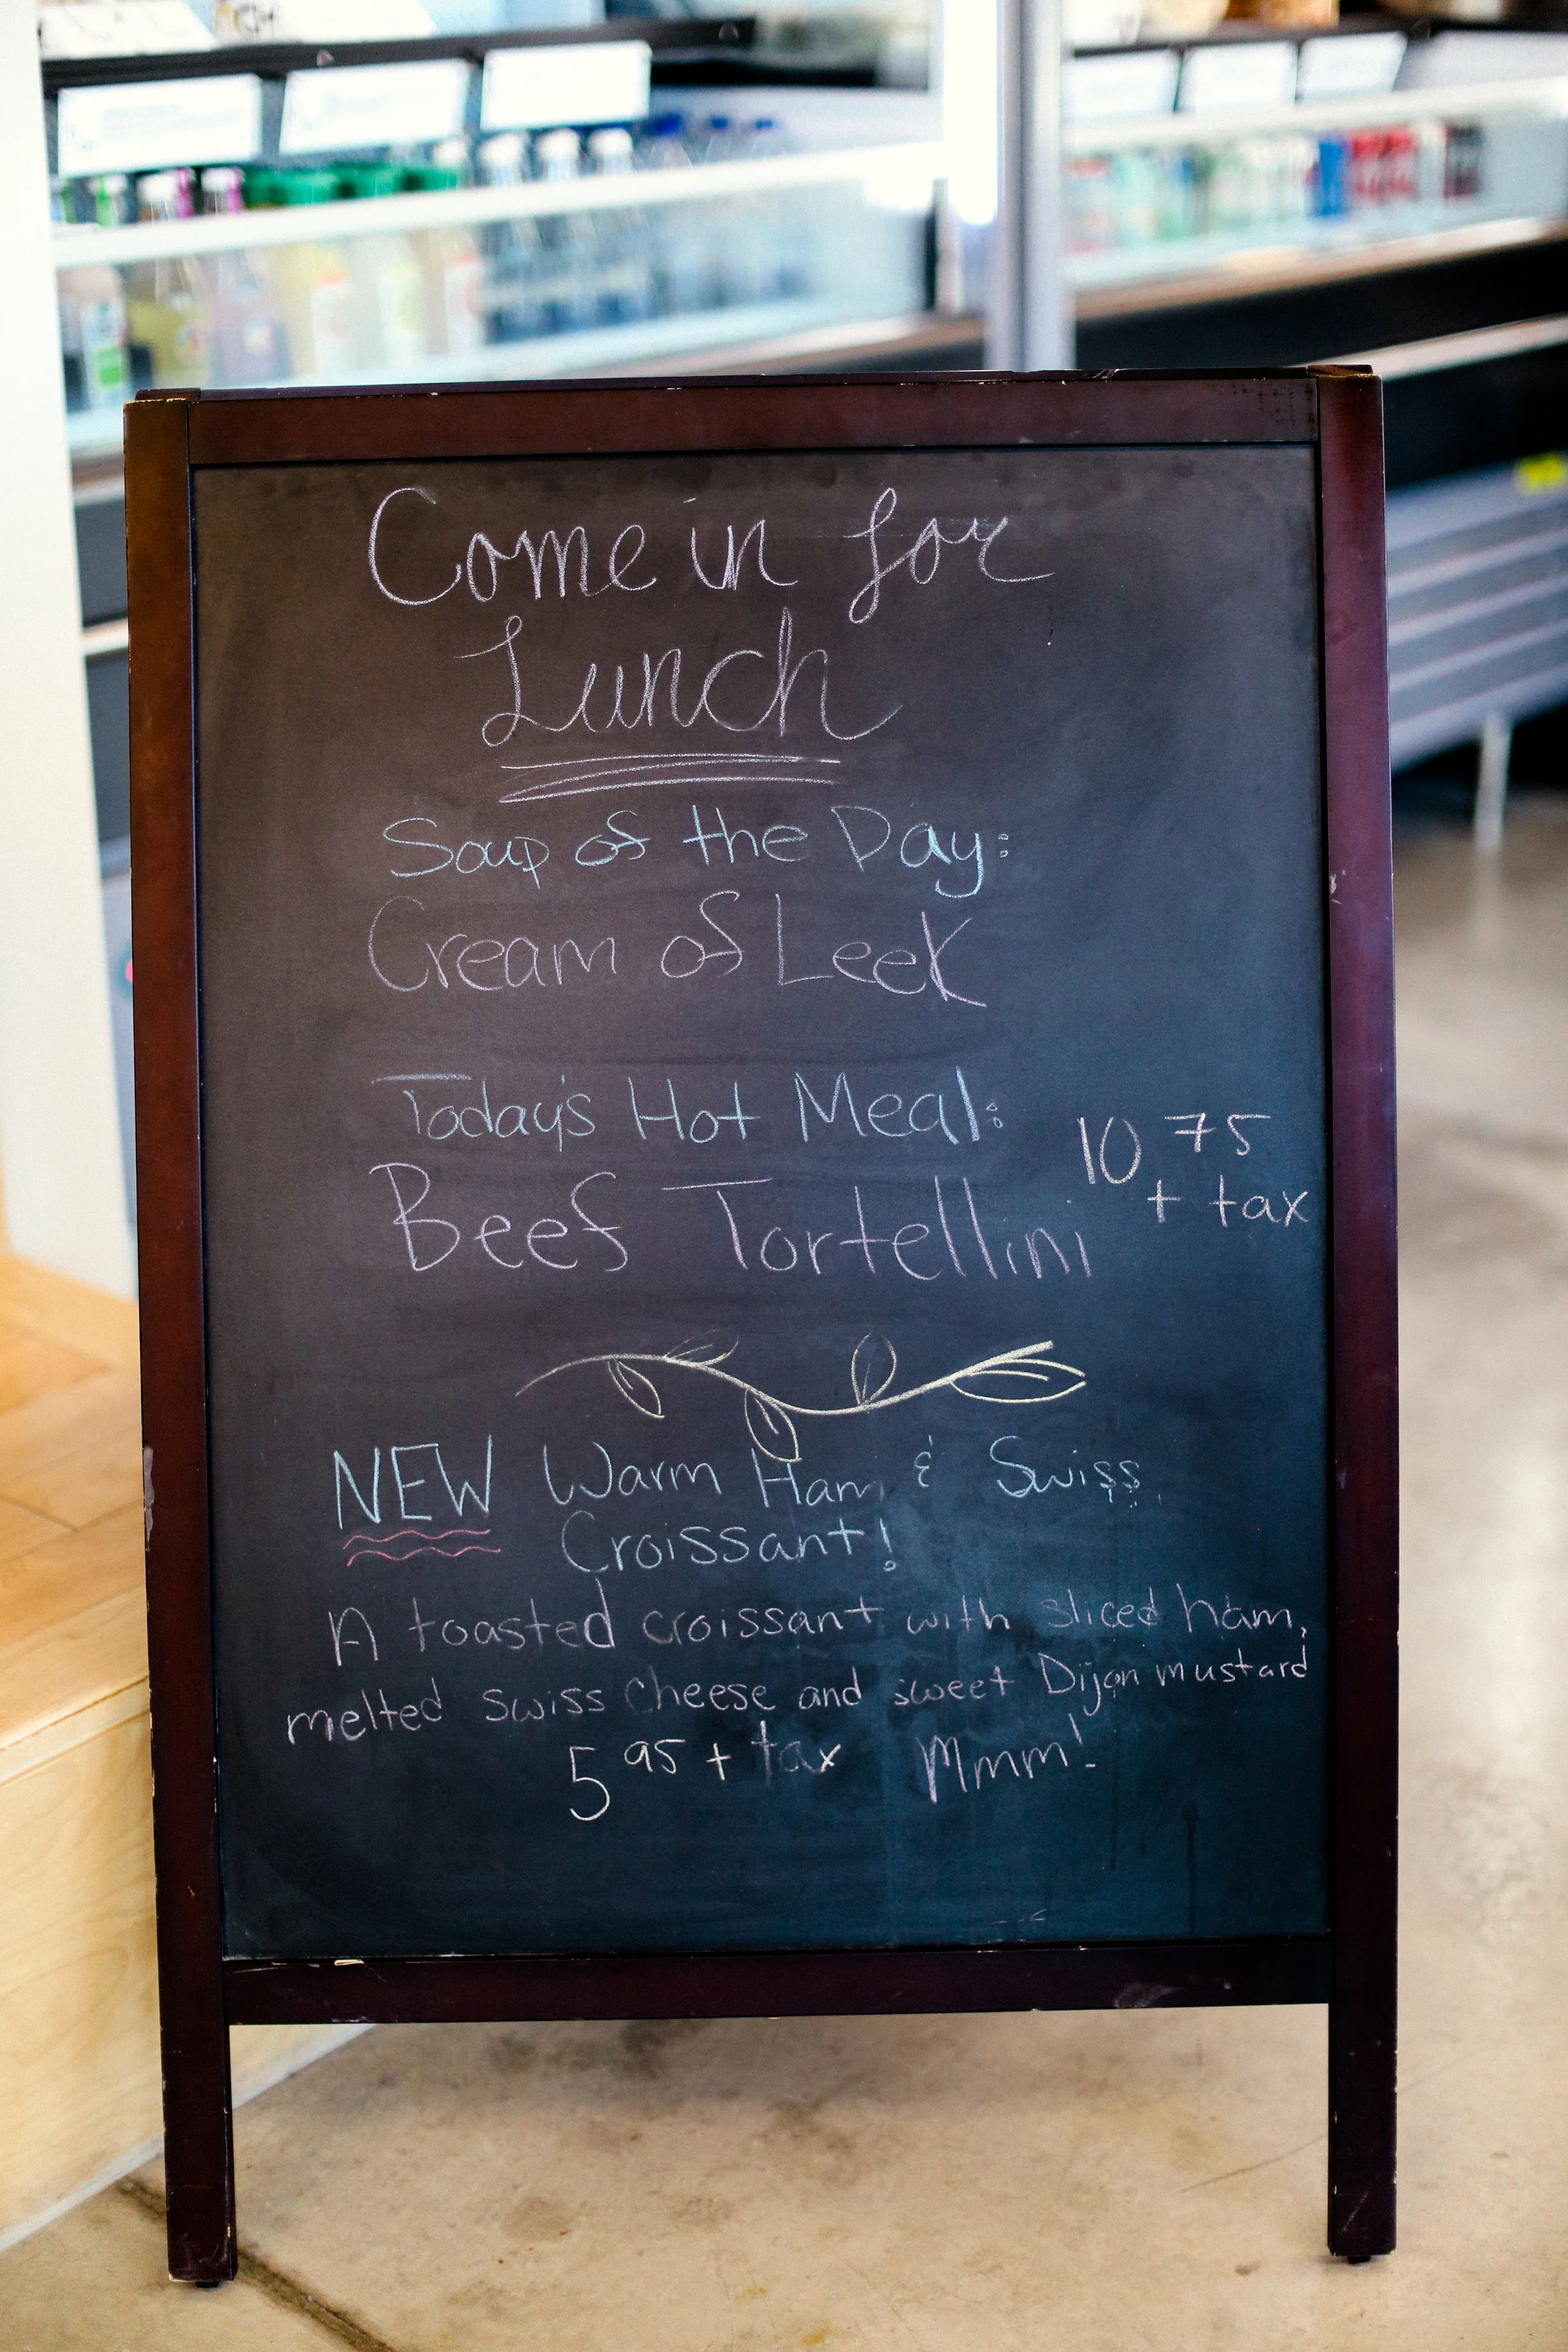 Come in for
Lunch
Soup of the Day:
Cream of Leek
Today's Hot Meal:
10 75
+ tax
Beef Tortellini
NEW Warm Ham & Swiss
Croissant!
A toasted croissant with sliced ham,
melted swiss cheese and sweet Dijon mustard
5 95 + tax Mmm!